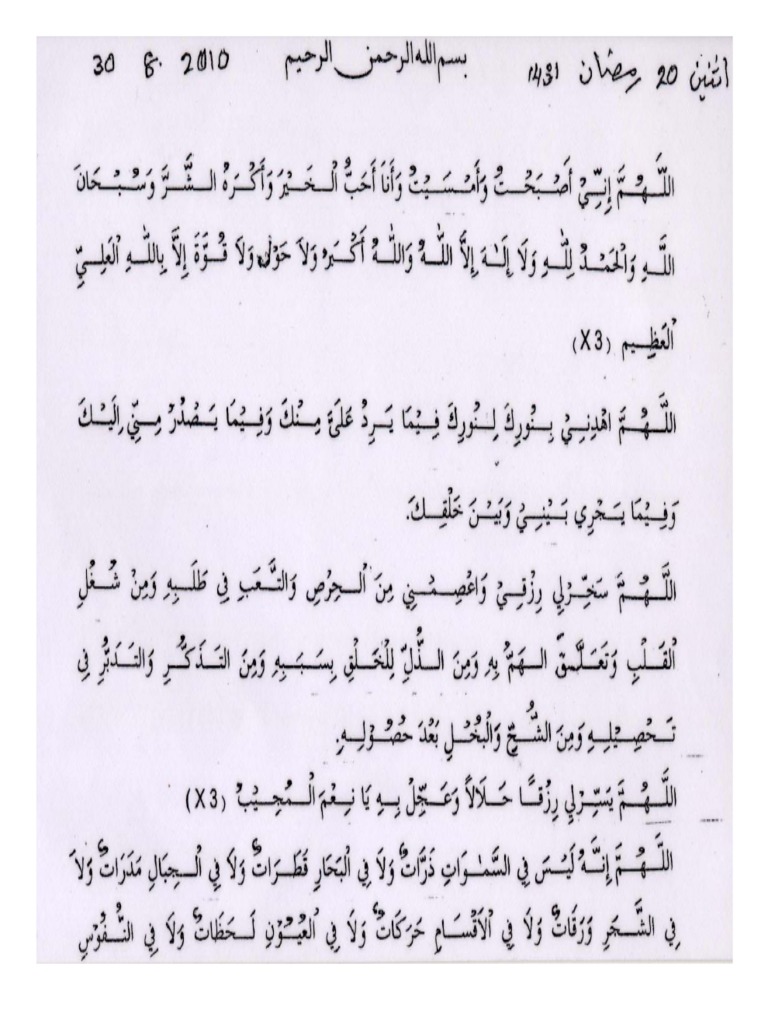 اثنين 20 رمضان 1431 بسم الله الرحمن الرحيم 30 8. 2010
اللَّهُمَّ إِنِّيْ أَصْبَحْتُ وَأَمْسَيْتُ وَأَنَا أَحَبُّ الْخَيْرَ وَأَكْرَهُ الشَّرَّ وَسُبْحَانَ
اللَّهِ وَالْحَمْدُ لِلَّهِ وَلَا إِلَهَ إِلَّا اللَّهُ وَاللَّهُ أَكْبَرُ وَلَا حَوْلَ وَلَا قُوَّةَ إِلَّا بِاللَّهِ الْعَلِيِّ
الْعَظِيم (X3)
اللَّهُمَّ اهْدِنِيْ بِنُورِكَ لِنُورِكَ فِيْمَا يَرِدُ عَلَيَّ مِنْكَ وَفِيْمَا يَصْدُرُ مِنِّي إِلَيْكَ
وَفِيْمَا يَجْرِي بَيْنِيْ وَبَيْنَ خَلْقِكَ.
اللَّهُمَّ سَخِّرْلِي رِزْقِيْ وَاعْصِمْنِي مِنَ الْحِرْصِ وَالتَّعَبِ فِي طَلَبِهِ وَمِنْ شُغْلِ
الْقَلْبِ وَتَعَلُّقِ الهَمِّ بِهِ وَمِنَ الذُّلِّ لِلْخَلْقِ بِسَبَبِهِ وَمِنَ التَذَكُّرِ وَالتَدَبُّرِ فِي
تَحْصِيْلِهِ وَمِنَ الشُّحِّ وَالْبُخْلِ بَعْدَ حُصُوْلِهِ.
اللَّهُمَّ يَسِّرْلِي رِزْقًا حَلَالاً وَعَجِّلْ بِهِ يَا نِعْمَ الْمُجِيْبُ (X3)
اللَّهُمَّ إِنَّهُ لَيْسَ فِي السَّمٰوَاتِ ذَرَّاتٌ وَلَا فِي الْبَحَارِ قَطَرَاتٌ وَلَا فِي الْجِبَالِ مَدَرَاتٌ وَلَا
فِي الشَّجَرِ وَرَقَاتٌ وَلَا فِي الْأَقْسَامِ حَرَكَاتٌ وَلَا فِي الْعُيُوْنِ لَحَظَاتٌ وَلَا فِي النُّفُوْسِ